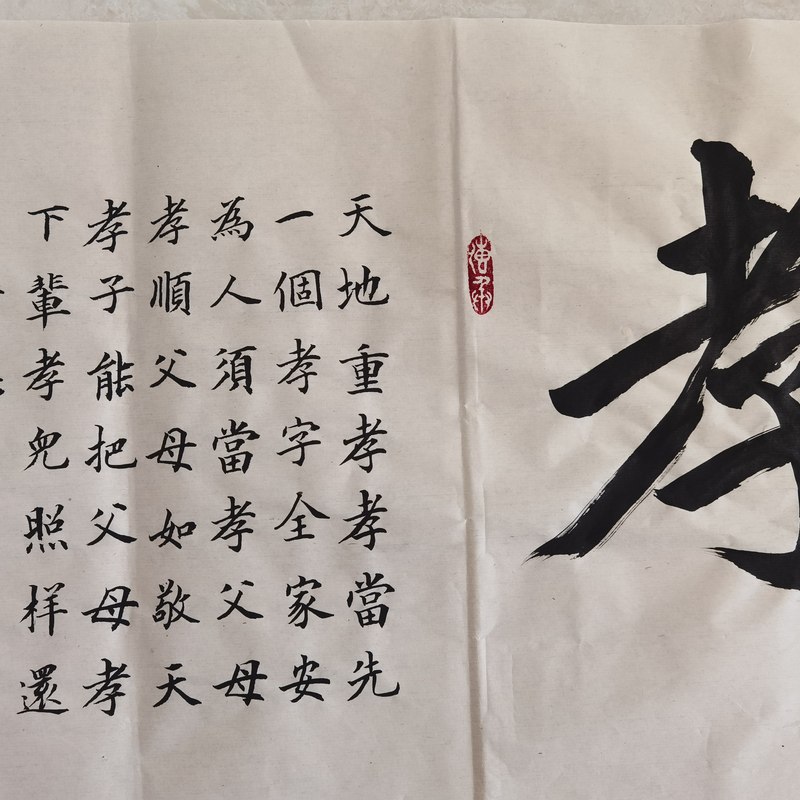 孝
天地重孝孝當先
一個孝字全家安
為人須當孝父母
孝順父母如敬天
孝子能把父母孝
下輩孝兒照样還